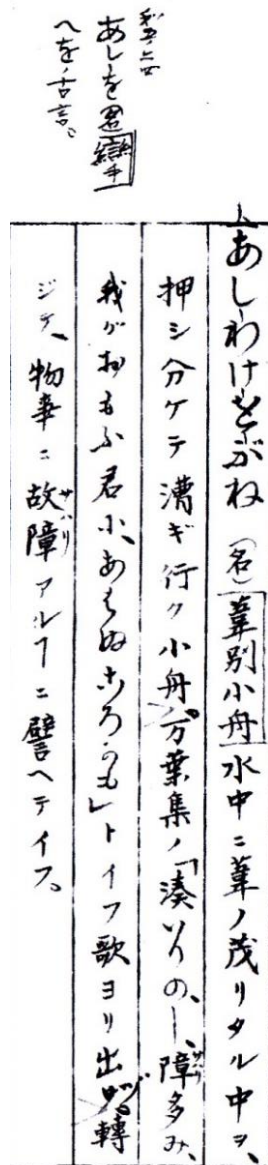 あしを
へを、舌言。
あしわけをぶね (名) 葦別小舟 水中ニ葦ノ茂リタル中ヲ、
押シ分ケテ漕ギ行ク小舟。万葉集ノ「湊いりの、―、障サワリ多み、
我がおもふ君に、あはぬころかも」トイフ歌ヨリ出ヅ 轉
ジテ、物事ニ故障サハリアルヿニ譬ヘテイフ。